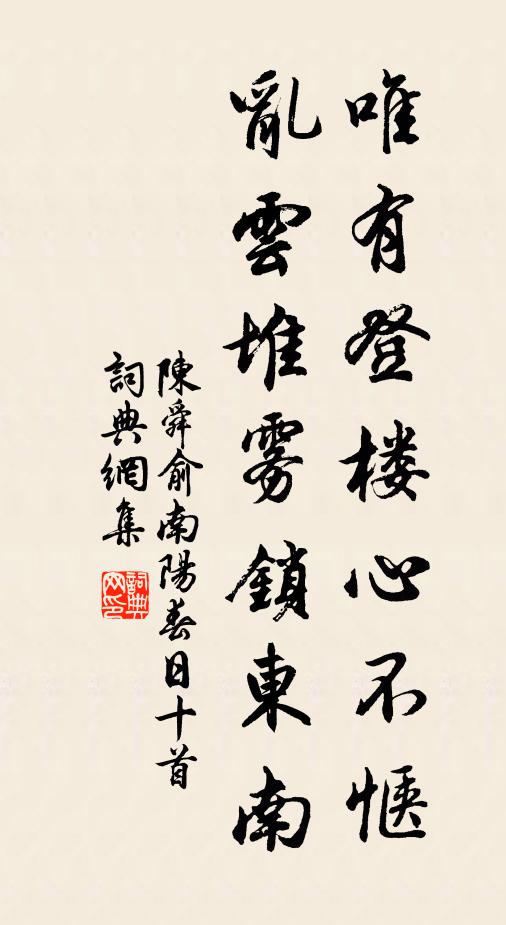 唯有登楼心不惬
亂雲堆雾鎖東南
陳舜俞南陽春日十首
詞典網集
詞典网印